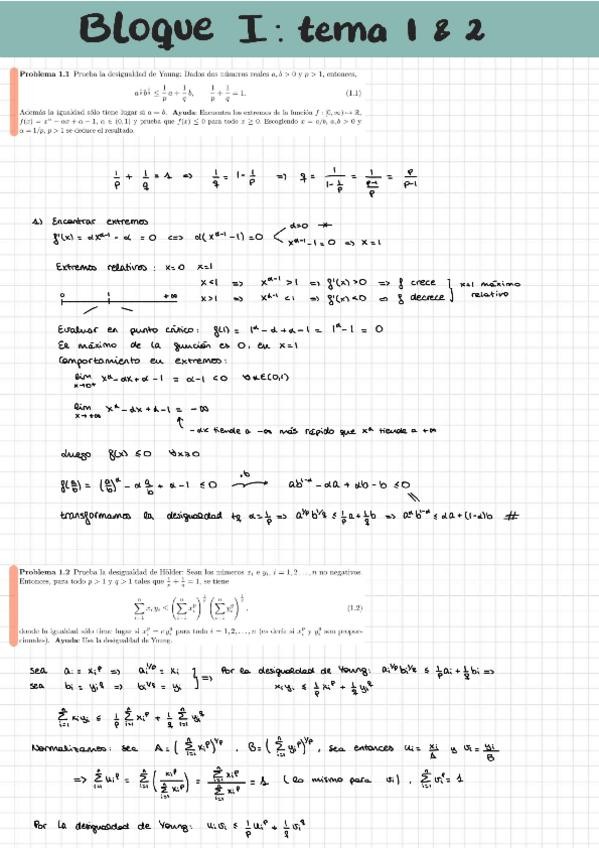 Bloque I: tema 1 & 2
Problema 1.1 Prueba la desigualdad de Young: Dados dos números reales a, b > 0 y p > 1, entonces,
a^{1/p} b^{1/q} ≤ 1/p a + 1/q b, 1/p + 1/q = 1. (1.1)
Además la igualdad sólo tiene lugar si a = b. Ayuda: Encuentra los extremos de la función f : [0, ∞) ↦ ℝ,
f(x) = x^α − αx + α − 1, α ∈ (0, 1) y prueba que f(x) ≤ 0 para todo x ≥ 0. Escogiendo x = a/b, a, b > 0 y
α = 1/p, p > 1 se deduce el resultado.
1/p + 1/q = 1 => 1/q = 1 - 1/p => q = 1/(1 - 1/p) = 1/((p-1)/p) = p/(p-1)
1) Encontrar extremos
f'(x) = αx^{α-1} - α = 0 <=> α(x^{α-1} - 1) = 0
α=0
x^{α-1} - 1 = 0 => x = 1
Extremos relativos: x=0 x=1
x<1 => x^{α-1} > 1 => f'(x) > 0 => f crece
x>1 => x^{α-1} < 1 => f'(x) < 0 => f decrece
x=1 máximo
relativo
0 1 +∞
Evaluar en punto crítico: f(1) = 1^α - α + α - 1 = 1^α - 1 = 0
El máximo de la función es 0, en x=1
Comportamiento en extremos:
lim x→0+ x^α - αx + α - 1 = α - 1 < 0 ∀α∈(0,1)
lim x→+∞ x^α - αx + α - 1 = -∞
-αx tiende a -∞ más rápido que x^α tiende a +∞
Luego f(x) ≤ 0 ∀x≥0
f(a/b) = (a/b)^α - α a/b + α - 1 ≤ 0 ·b → a^α b^{1-α} - αa + αb - b ≤ 0
transformamos la desigualdad tq α = 1/p => a^{1/p} b^{1/q} ≤ 1/p a + 1/q b => a^α b^{1-α} ≤ αa + (1-α)b #
Problema 1.2 Prueba la desigualdad de Hölder: Sean los números x_i e y_i, i = 1, 2, . . . , n no negativos.
Entonces, para todo p > 1 y q > 1 tales que 1/p + 1/q = 1, se tiene
∑_{i=1}^n x_i y_i ≤ (∑_{i=1}^n x_i^p)^{1/p} (∑_{i=1}^n y_i^q)^{1/q}, (1.2)
donde la igualdad sólo tiene lugar si x_i^p = c y_i^q para todo i = 1, 2, . . . , n (es decir si x_i^p y y_i^q son propor-
cionales). Ayuda: Usa la desigualdad de Young.
sea a_i = x_i^p => a_i^{1/p} = x_i
sea b_i = y_i^q => b_i^{1/q} = y_i
=> Por la desigualdad de Young: a_i^{1/p} b_i^{1/q} ≤ 1/p a_i + 1/q b_i =>
x_i y_i ≤ 1/p x_i^p + 1/q y_i^q
∑_{i=1}^n x_i y_i ≤ 1/p ∑_{i=1}^n x_i^p + 1/q ∑_{i=1}^n y_i^q
Normalizamos: sea A = (∑_{i=1}^n x_i^p)^{1/p}, B = (∑_{i=1}^n y_i^q)^{1/q}, sea entonces u_i = x_i/A y v_i = y_i/B
=> ∑_{i=1}^n u_i^p = ∑_{i=1}^n (x_i^p / ∑_{i=1}^n x_i^p) = ∑_{i=1}^n x_i^p / ∑_{i=1}^n x_i^p = 1 (lo mismo para v_i), ∑_{i=1}^n v_i^q = 1
Por la desigualdad de Young: u_i v_i ≤ 1/p u_i^p + 1/q v_i^q